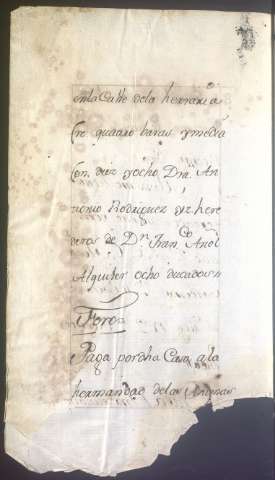 en la Calle de la herreria
fre quatro baras y media
fon, diez y ocho Dra. An
tonio Rodriguez yz. here
deros de Dn. Fran.co
Alquiler ocho ducados
Foro
Paga por dha Casa a la
hermandad de las Animas